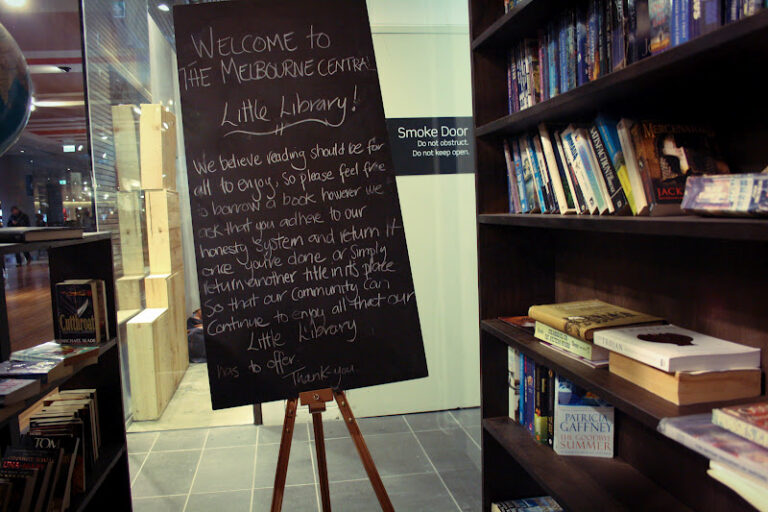 Welcome to
The Melbourne Central
Little Library!
We believe reading should be for
all to enjoy, so please feel free
to borrow a book however we
ask that you adhere to our
honesty system and return it
once you're done or simply
return another title in its place
so that our community can
continue to enjoy all that our
Little Library
has to offer.
Thank you
Smoke Door
Do not obstruct.
Do not keep open.
PATRICIA
GAFFNEY
THE GOODBYE
SUMMER
Cutthroat
MICHAEL SLADE
TOM